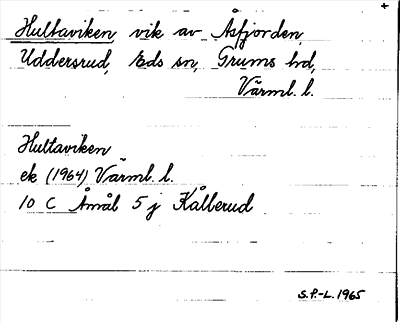 +
Hultaviken, vik av Åsfjorden,
Uddersrud, Eds sn, Grums hd,
Värml. l.
Hultaviken
ek (1964) Värml. l.
10 C Åmål 5 j Kålberud
S.P.-L. 1965